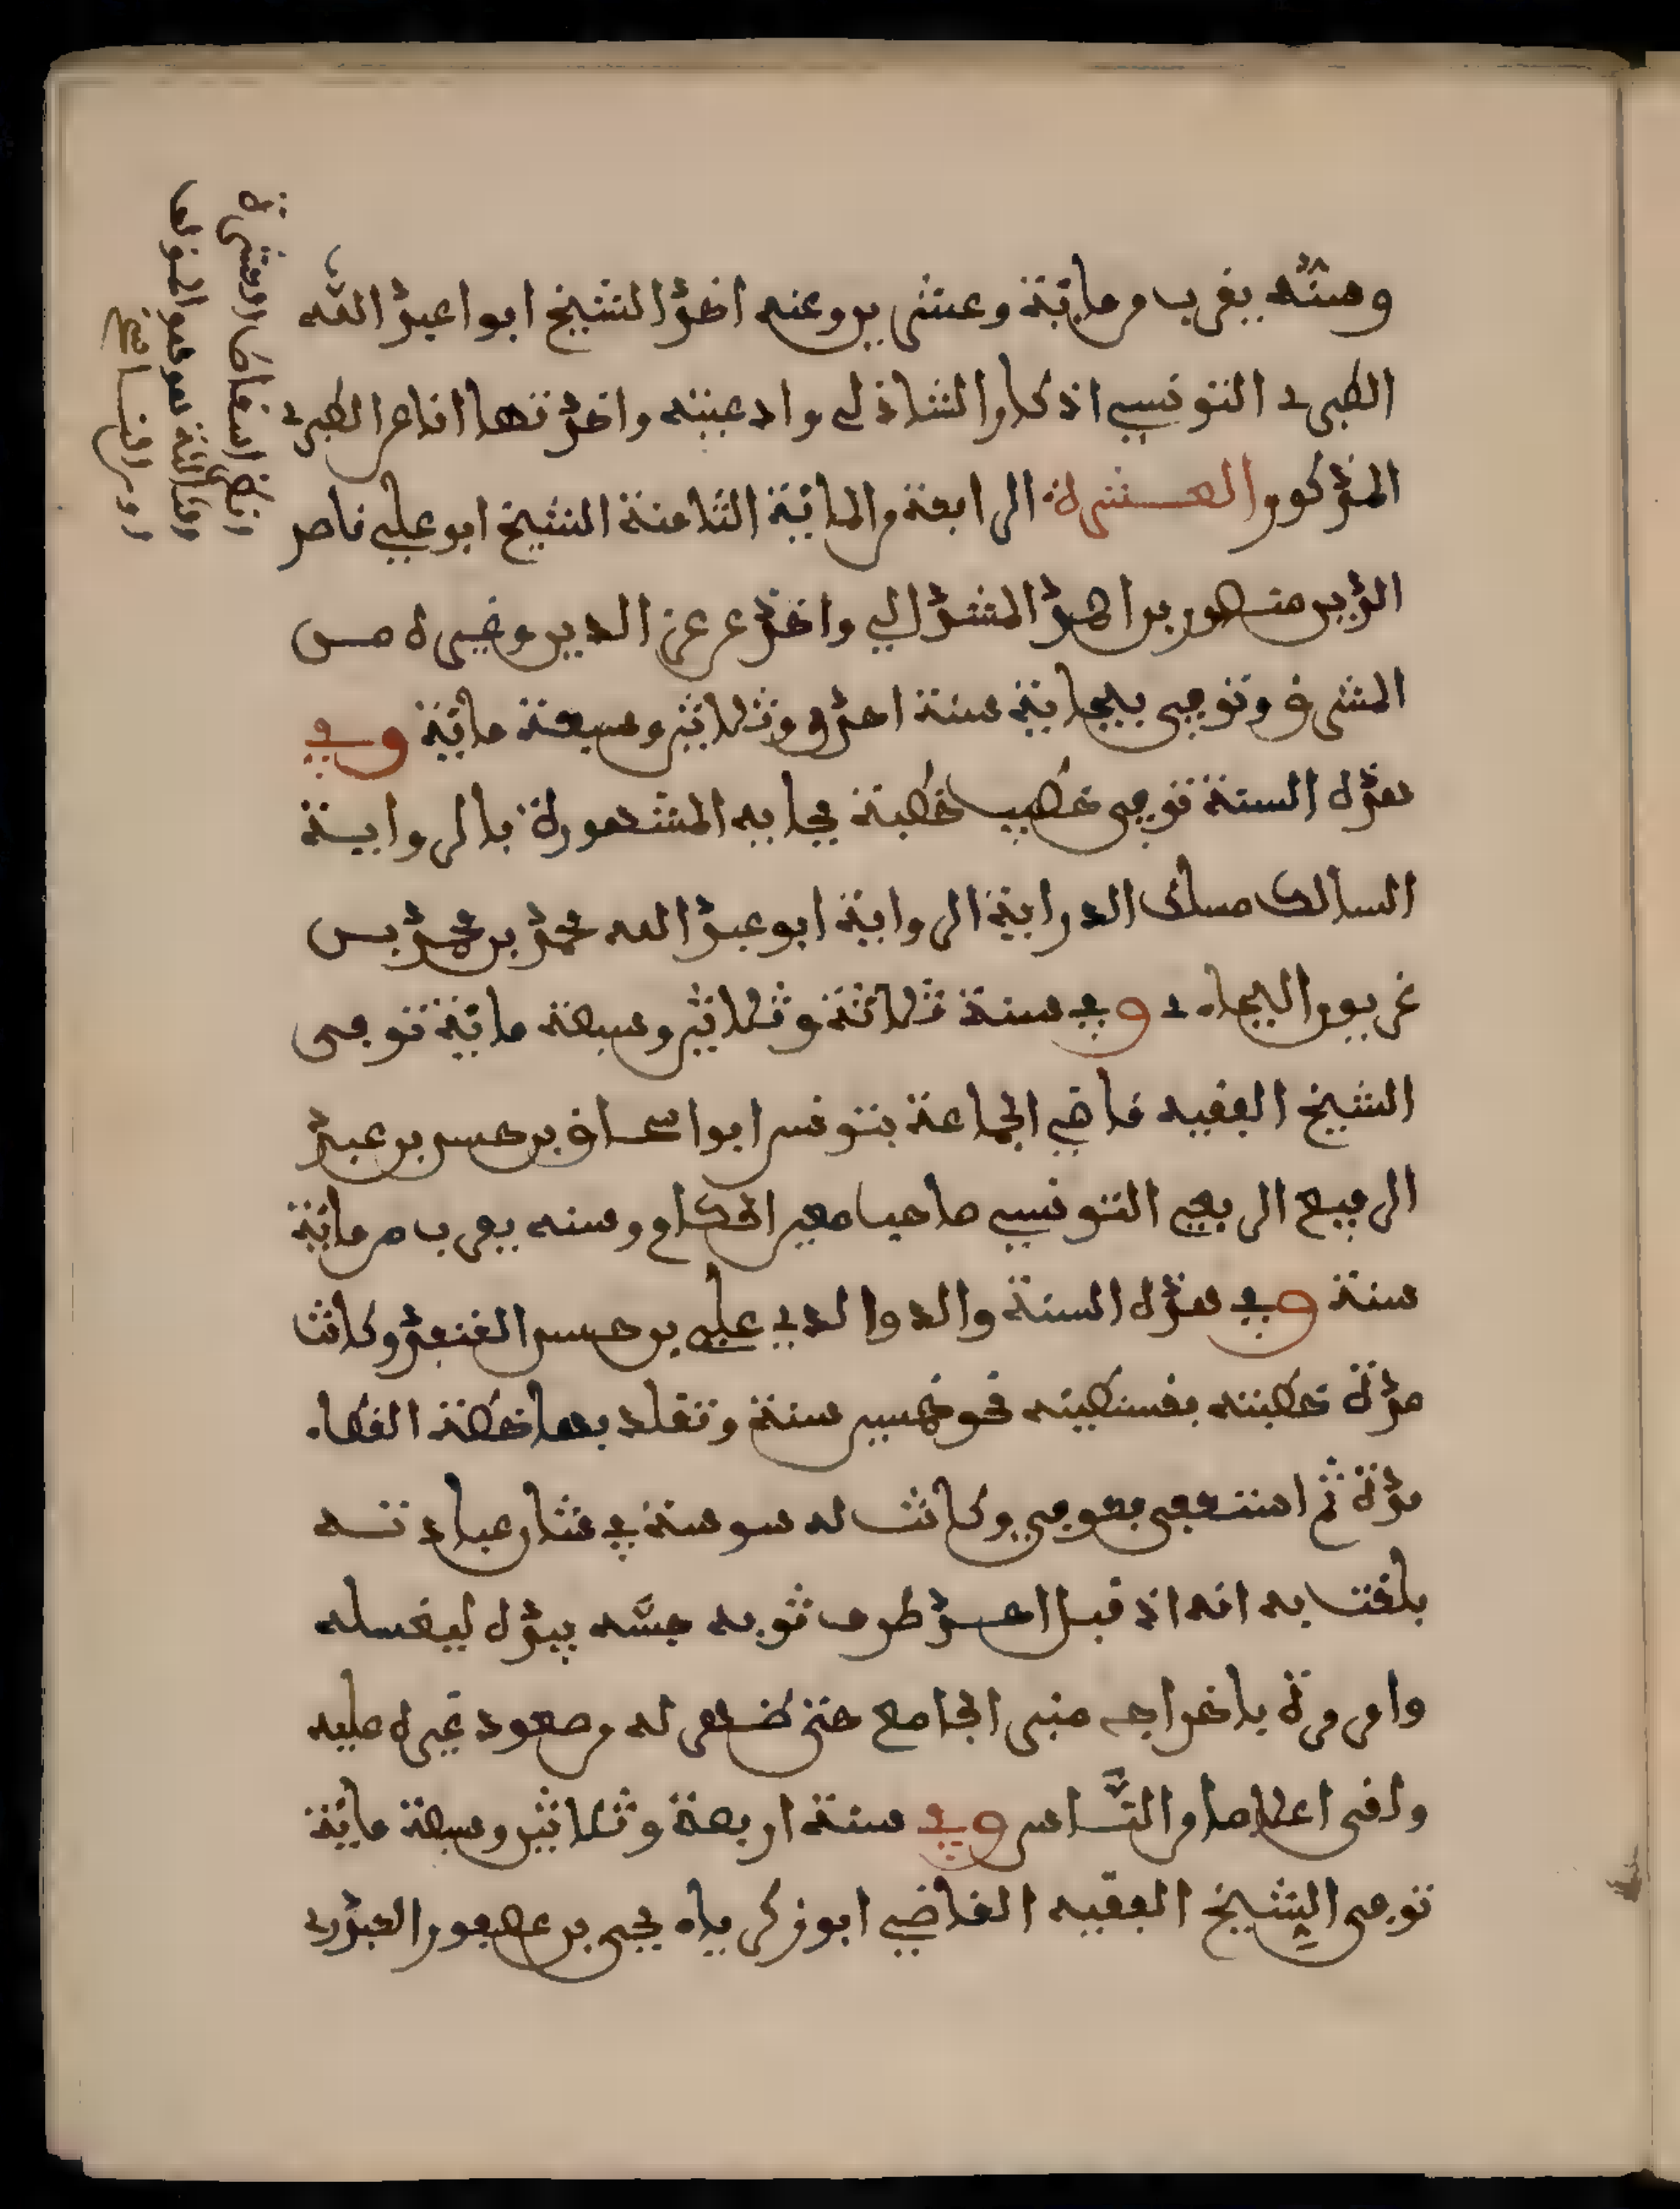 وسنه يقرب من مائة وعشرين وعنه اخذ الشيخ ابوا عبد الله
الطبري التونسي اذكار الشاذلي وادعيته واخذتها انا عن الطبري
المذكور والعشرة الرابعة من المائة الثامنة الشيخ ابو علي ناصر
الدين منصور بن احمد المشدالي واخذ عن عز الدين وغيره مـن
المشرق وتوفي ببجاية سنة احدى وثلاثين وسبعة مائة وفي
هذه السنة توفي خطيب خطبة بجايه المشهورة بالروايـة
السالك مسلك الدراية الرواية ابو عبد الله محمد بن محمد بـن
غريون البجاءي وفي سنة ثلاثة وثلاثين وسبعة مائة توفى
الشيخ الفقيه قاضي الجماعة بتونس ابوا سحاق بن حسن بن عبد
الرفيع الربعي التونسي صاحب معين الحكام وسنه يقرب من مائة
سنة وفي هذه السنة والد والدي علي بن حسن القنفد وكانت
مدة خطبته بقسنطينه نحو خمسين سنة وتقلد بها خطة القضاء
مدة ثم استعفى فعوفي وكانت له سوسنة في شان عبادتـه
بلغت به انه اذ قبل احـد طرف ثوبه حبسه بيده ليغسله
وامر مرة باخراج منبر الجامع حتى ظـهر له من صعود غيره عليه
ولقى اعلاما من النـاس وفي سنة اربعة وثلاثين وسبعة مائة
توفى الشيخ الفقيه القاضي ابو زكرياء يحيى بن عصفور العبدري